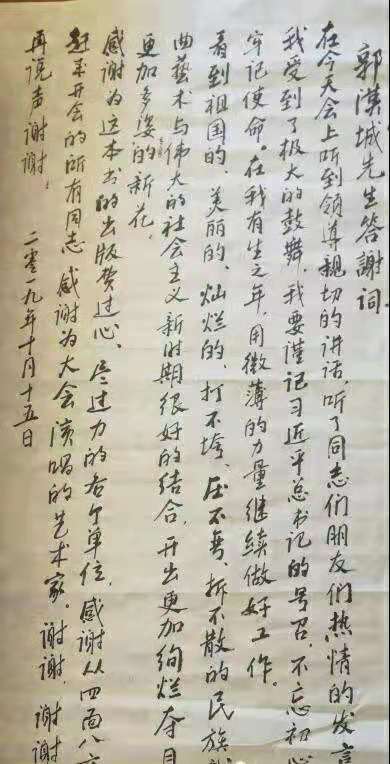 郭汉城先生答謝词
在今天会上听到领导親切的讲话,听了同志们朋友们热情的发言
我受到了极大的鼓舞,我要謹记习近平总书记的号召,不忘初心
牢记使命。在我有生之年,用微薄的力量继续做好工作。
看到祖国的、美丽的、灿烂的、打不垮、压不弯、拆不散的民族
曲藝术与伟大的社会主义新时期很好的结合,开出更加绚烂夺目
更加多姿的新花。
感谢为这本书的出版费过心、尽过力的各个单位,感谢从四面八
赶来开会的所有同志感谢为大会演唱的艺术家。谢谢,谢谢
再说声谢谢。
二零一九年十月十五日